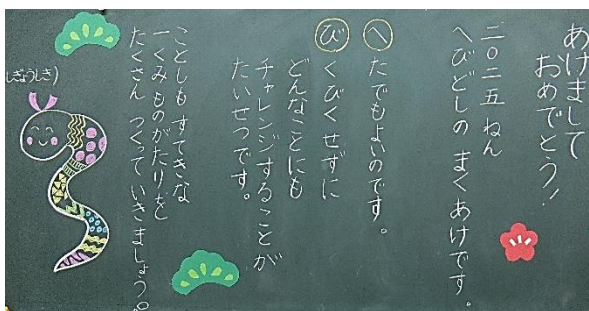 あけまして
おめでとう!
二〇二五ねん
へびどしの まくあけです。
へたでもよいのです。
びくびくせずに
どんなことにも
チャレンジすることが
たいせつです。
ことしも すてきな
一くみ ものがたりを
たくさん つくって いきましょう。
しぎょうしき)